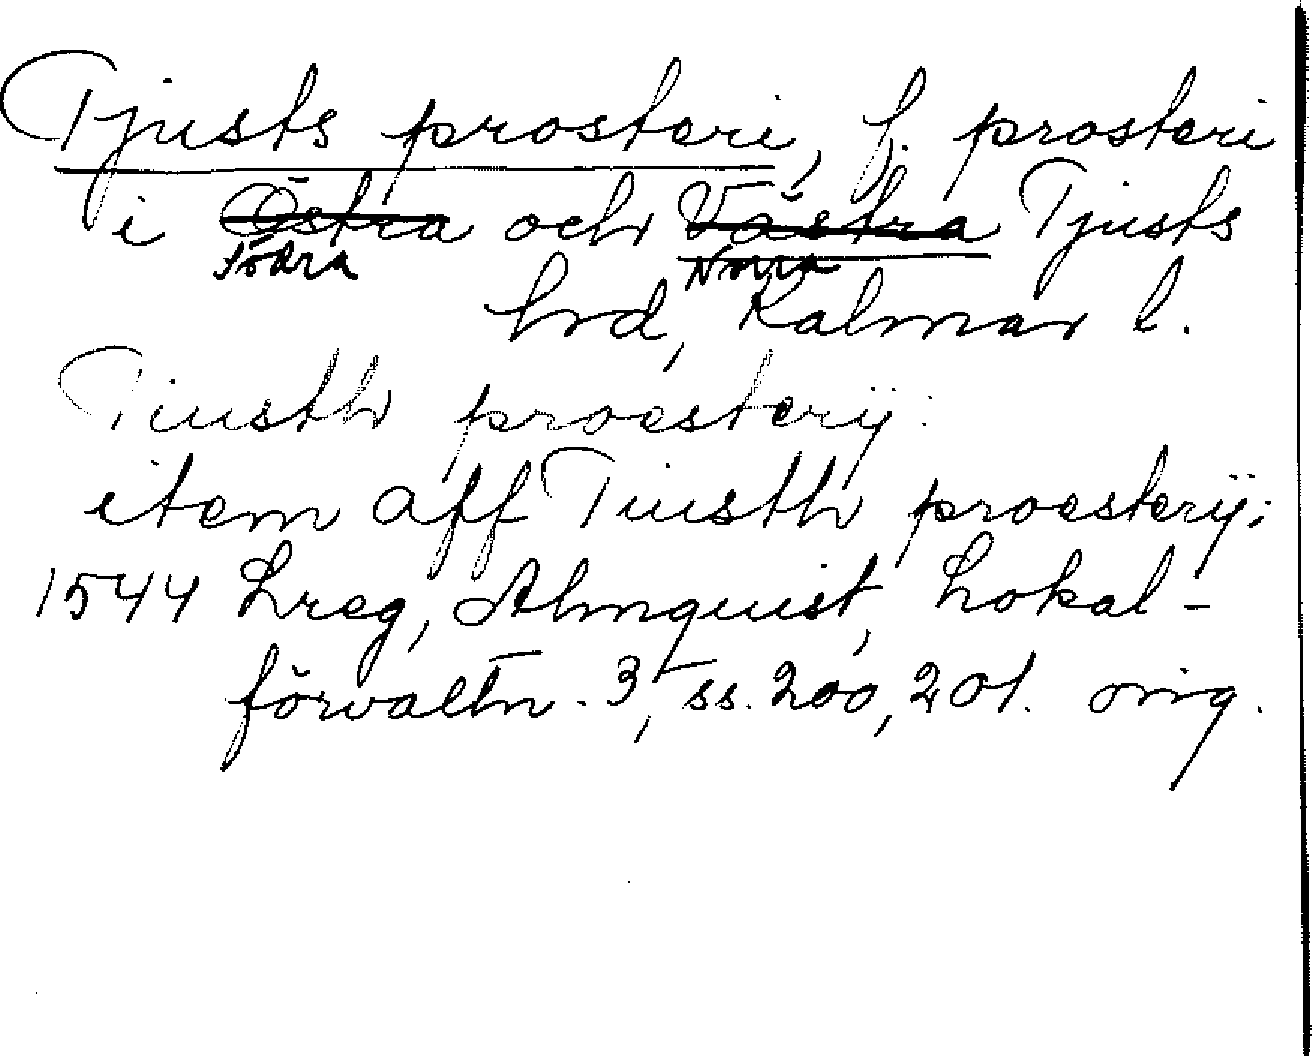 Tjusts prosteri, f. prosteri
i Östra och Västra Tjusts
Södra Norra
hrd, Kalmar l.
Tiusth proesterÿ:
item aff Tiusth proesterÿ;
1544 Lreg, Almquist, Lokal-
förvaltn. 3, ss. 200, 201. orig.